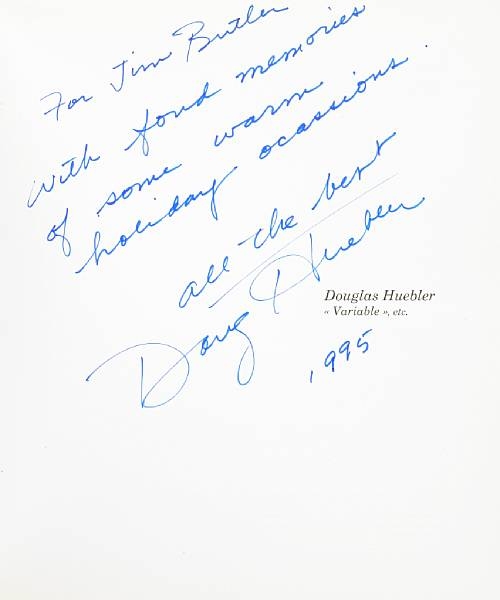 For Jim Butler
With fond memories
of some warm
holiday ocassions.
all the best
Doug Huebler
Douglas Huebler
« Variable », etc.
1995